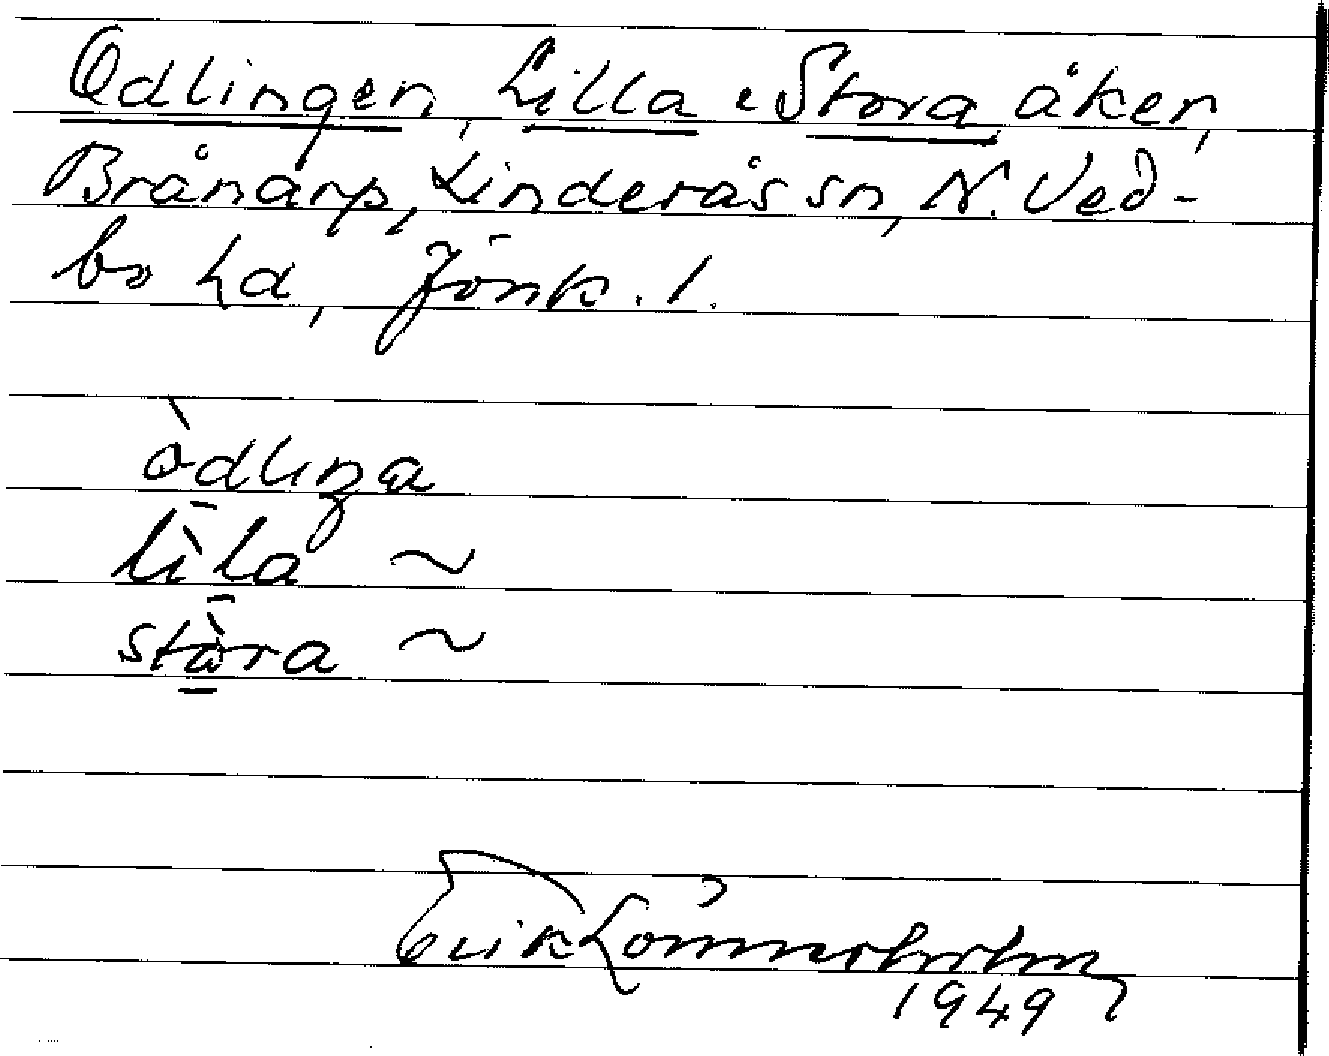 Odlingen, Lilla o Stora åker,
Brånarp, Linderås sn, N. Ved-
bo hd, Jönk. l.
òdlıŋa
lìla ~
stòra ~
Erik Lönnerholm
1949